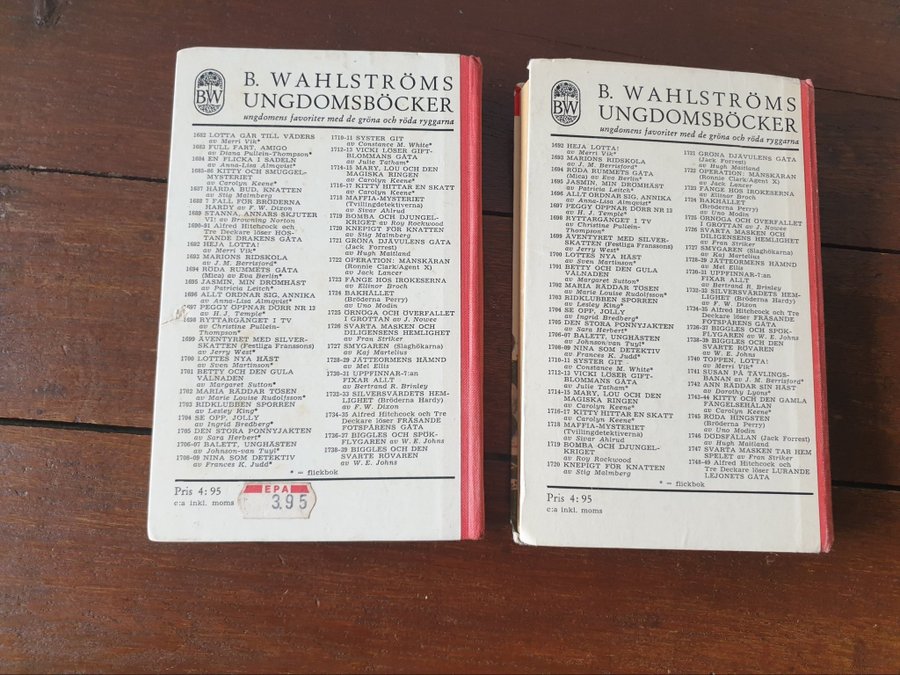 BW
B. WAHLSTRÖMS
UNGDOMSBÖCKER
ungdomens favoriter med de gröna och röda ryggarna
1682 LOTTA GÅR TILL VÄDERS
av Merri Vik*
1683 FULL FART, AMIGO
av Diana Pullein-Thompson*
1684 EN FLICKA I SADELN
av Anna-Lisa Almqvist*
1685-86 KITTY OCH SMUGGEL-
MYSTERIET
av Carolyn Keene*
1687 HÅRDA BUD, KNATTEN
av Stig Malmberg
1688 I FÄLL FÖR BRÖDERNA
HARDY av F. W. Dixon
1689 STANNA, ANNARS SKJUTER
VI! av Browning Norton
1690-91 Alfred Hitchcock och
Tre Deckare löser HOS-
TANDE DRAKENS GÅTA
1692 HEJA LOTTA!
av Merri Vik*
1693 MARIONS RIDSKOLA
av J. M. Berrisford*
1694 RÖDA RUMMETS GÅTA
(Mica) av Eva Berlin*
1695 JASMIN, MIN DRÖMHÄST
av Patricia Leitch*
1696 ALLT ORDNAR SIG, ANNIKA
av Anna-Lisa Almqvist*
1697 PEGGY ÖPPNAR DÖRR NR 13
av H. J. Temple*
1698 RYTTARGÄNGET I TV
av Christine Pullein-
Thompson*
1699 ÄVENTYRET MED SILVER-
SKATTEN (Festliga Franssons)
av Jerry West*
1700 LOTTES NYA HÄST
av Sven Martinson*
1701 BETTY OCH DEN GULA
VÅLNADEN
av Margaret Sutton*
1702 MARIA RÄDDAR TÖSEN
av Marie Louise Rudolfsson*
1703 RIDKLUBBEN SPORREN
av Lesley King*
1704 SE OPP, JOLLY
av Ingrid Bredberg*
1705 DEN STORA PONNYJAKTEN
av Sara Herbert*
1706-07 BALETT, UNGHÄSTEN
av Johnson-van Tuyl*
1708-09 NINA SOM DETEKTIV
av Frances K. Judd*
1710-11 SYSTER GIT
av Constance M. White*
1712-13 VICKI LÖSER GIFT-
BLOMMANS GÅTA
av Julie Tatham*
1714-15 MARY, LOU OCH DEN
MAGISKA RINGEN
av Carolyn Keene*
1716-17 KITTY HITTAR EN SKATT
av Carolyn Keene*
1718 MAFFIA-MYSTERIET
(Tvillingdetektiverna)
av Sivar Ahlrud
1719 BOMBA OCH DJUNGEL-
KRIGET av Roy Rockwood
1720 KNEPIGT FÖR KNATTEN
av Stig Malmberg
1721 GRÖNA DJÄVULENS GÅTA
(Jack Forrest)
av Hugh Maitland
1722 OPERATION: MÅNSKÄRAN
(Ronnie Clark/Agent X)
av Jack Lancer
1723 FÅNGE HOS IROKESERNA
av Ellinor Broch
1724 BAKHÅLLET
(Bröderna Perry)
av Uno Modin
1725 ÖRNÖGA OCH ÖVERFALLET
I GROTTAN av J. Nowee
1726 SVARTA MASKEN OCH
DILIGENSENS HEMLIGHET
av Fran Striker
1727 SMYGAREN (Slaghökarna)
av Kaj Martelius
1728-29 JÄTTEORMENS HÄMND
av Mel Ellis
1730-31 UPPFINNAR-7:an
FIXAR ALLT
av Bertrand R. Brinley
1732-33 SILVERSVÄRDETS HEM-
LIGHET (Bröderna Hardy)
av F. W. Dixon
1734-35 Alfred Hitchcock och Tre
Deckare löser FRÄSANDE
FOTSPÅRENS GÅTA
1736-37 BIGGLES OCH SPÖK-
FLYGAREN av W. E. Johns
1738-39 BIGGLES OCH DEN
SVARTE RÖVAREN
av W. E. Johns
* = flickbok
Pris 4:95
c:a inkl. moms
EPA
3.95
BW
B. WAHLSTRÖMS
UNGDOMSBÖCKER
ungdomens favoriter med de gröna och röda ryggarna
1692 HEJA LOTTA!
av Merri Vik*
1693 MARIONS RIDSKOLA
av J. M. Berrisford*
1694 RÖDA RUMMETS GÅTA
(Mica) av Eva Berlin*
1695 JASMIN, MIN DRÖMHÄST
av Patricia Leitch*
1696 ALLT ORDNAR SIG, ANNIKA
av Anna-Lisa Almqvist*
1697 PEGGY ÖPPNAR DÖRR NR 13
av H. J. Temple*
1698 RYTTARGÄNGET I TV
av Christine Pullein-
Thompson*
1699 ÄVENTYRET MED SILVER-
SKATTEN (Festliga Franssons)
av Jerry West*
1700 LOTTES NYA HÄST
av Sven Martinson*
1701 BETTY OCH DEN GULA
VÅLNADEN
av Margaret Sutton*
1702 MARIA RÄDDAR TÖSEN
av Marie Louise Rudolfsson*
1703 RIDKLUBBEN SPORREN
av Lesley King*
1704 SE OPP, JOLLY
av Ingrid Bredberg*
1705 DEN STORA PONNYJAKTEN
av Sara Herbert*
1706-07 BALETT, UNGHÄSTEN
av Johnson/van Tuyl*
1708-09 NINA SOM DETEKTIV
av Frances K. Judd*
1710-11 SYSTER GIT
av Constance M. White*
1712-13 VICKI LÖSER GIFT-
BLOMMANS GÅTA
av Julie Tatham*
1714-15 MARY, LOU OCH DEN
MAGISKA RINGEN
av Carolyn Keene*
1716-17 KITTY HITTAR EN SKATT
av Carolyn Keene*
1718 MAFFIA-MYSTERIET
(Tvillingdetektiverna)
av Sivar Ahlrud
1719 BOMBA OCH DJUNGEL-
KRIGET
av Roy Rockwood
1720 KNEPIGT FÖR KNATTEN
av Stig Malmberg
1721 GRÖNA DJÄVULENS GÅTA
(Jack Forrest)
av Hugh Maitland
1722 OPERATION: MÅNSKÄRAN
(Ronnie Clark/Agent X)
av Jack Lancer
1723 FÅNGE HOS IROKESERNA
av Ellinor Broch
1724 BAKHÅLLET
(Bröderna Perry)
av Uno Modin
1725 ÖRNÖGA OCH ÖVERFALLET
I GROTTAN av J. Nowee
1726 SVARTA MASKEN OCH
DILIGENSENS HEMLIGHET
av Fran Striker
1727 SMYGAREN (Slaghökarna)
av Kaj Martelius
1728-29 JÄTTEORMENS HÄMND
av Mel Ellis
1730-31 UPPFINNAR-7:an
FIXAR ALLT
av Bertrand R. Brinley
1732-33 SILVERSVÄRDETS HEM-
LIGHET (Bröderna Hardy)
av F. W. Dixon
1734-35 Alfred Hitchcock och Tre
Deckare löser FRÄSANDE
FOTSPÅRENS GÅTA
1736-37 BIGGLES OCH SPÖK-
FLYGAREN av W. E. Johns
1738-39 BIGGLES OCH DEN
SVARTE RÖVAREN
av W. E. Johns
1740 TOPPEN, LOTTA!
av Merri Vik*
1741 SUSAN PÅ TÄVLINGS-
BANAN av J. M. Berrisford*
1742 ANN RÄDDAR SIN HÄST
av Dorothy Lyons*
1743-44 KITTY OCH DEN GAMLA
FÄNGELSEHÅLAN
av Carolyn Keene*
1745 RÖDA HINGSTEN
(Bröderna Perry)
av Uno Modin
1746 DÖDSFÄLLAN (Jack Forrest)
av Hugh Maitland
1747 SVARTA MASKEN TAR HEM
SPELET av Fran Striker
1748-49 Alfred Hitchcock och
Tre Deckare löser LURANDE
LEJONETS GÅTA
* = flickbok
Pris 4:95
c:a inkl. moms